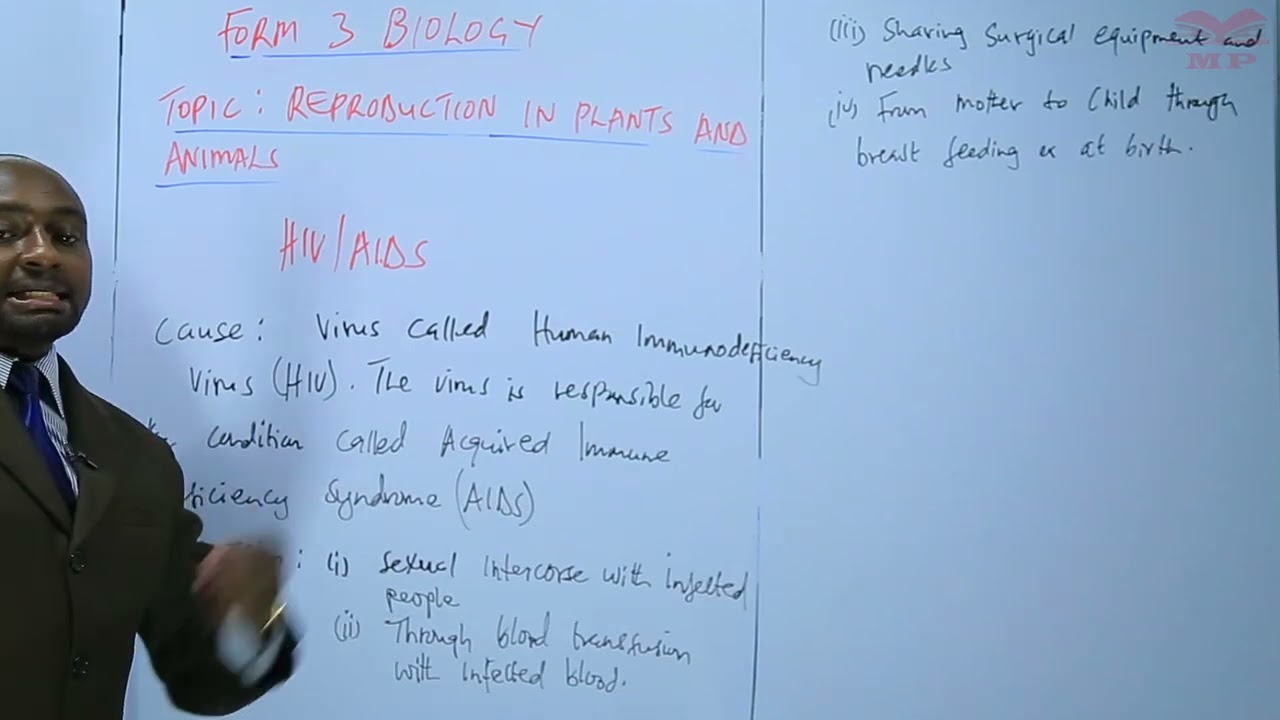 FORM 3 BIOLOGY
TOPIC: REPRODUCTION IN PLANTS AND
ANIMALS
HIV/AIDS
Cause: Virus called Human Immunodefficiency
Virus (HIV). The virus is responsible for
condition called Acquired Immune
ficiency Syndrome (AIDS)
: (i) Sexual Intercorse with infected
people
(ii) Through blood transfusion
with infected blood.
(iii) Sharing Surgical equipment and
needles
(iv) From mother to Child through
breast feeding or at birth.
MP